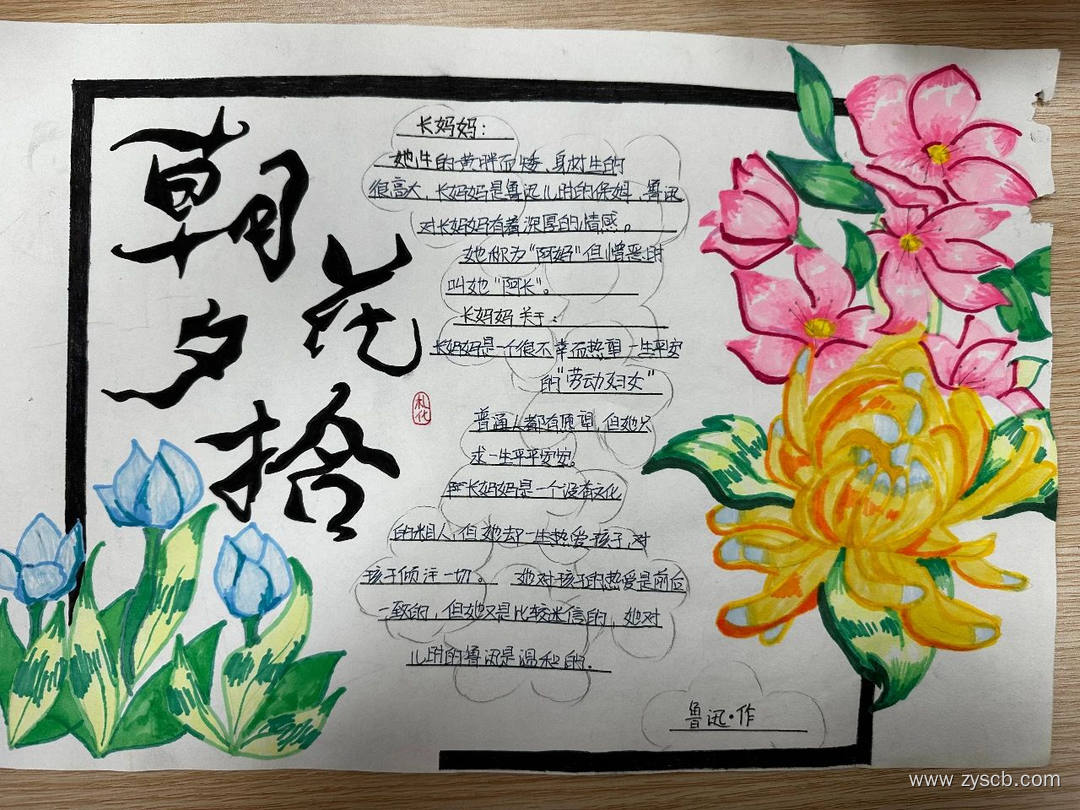 朝花夕拾
长妈妈：
她生的黄胖而矮，身材生的
很高大，长妈妈是鲁迅儿时的保姆，鲁迅
对长妈妈有着深厚的情感。
她称为“阿妈”但憎恶时
叫她“阿长”。
长妈妈关于：
长妈妈是一个很不幸而热望一生平安
的“劳动妇女”
普通人都有愿望，但她只
求一生平平安安。
长妈妈是一个没有文化
的粗人，但她却一生热爱孩子，对
孩子倾注一切。 她对孩子的热爱是前后
一致的，但她又是比较迷信的，她对
儿时的鲁迅是温和的.
鲁迅·作
www.zyscb.com